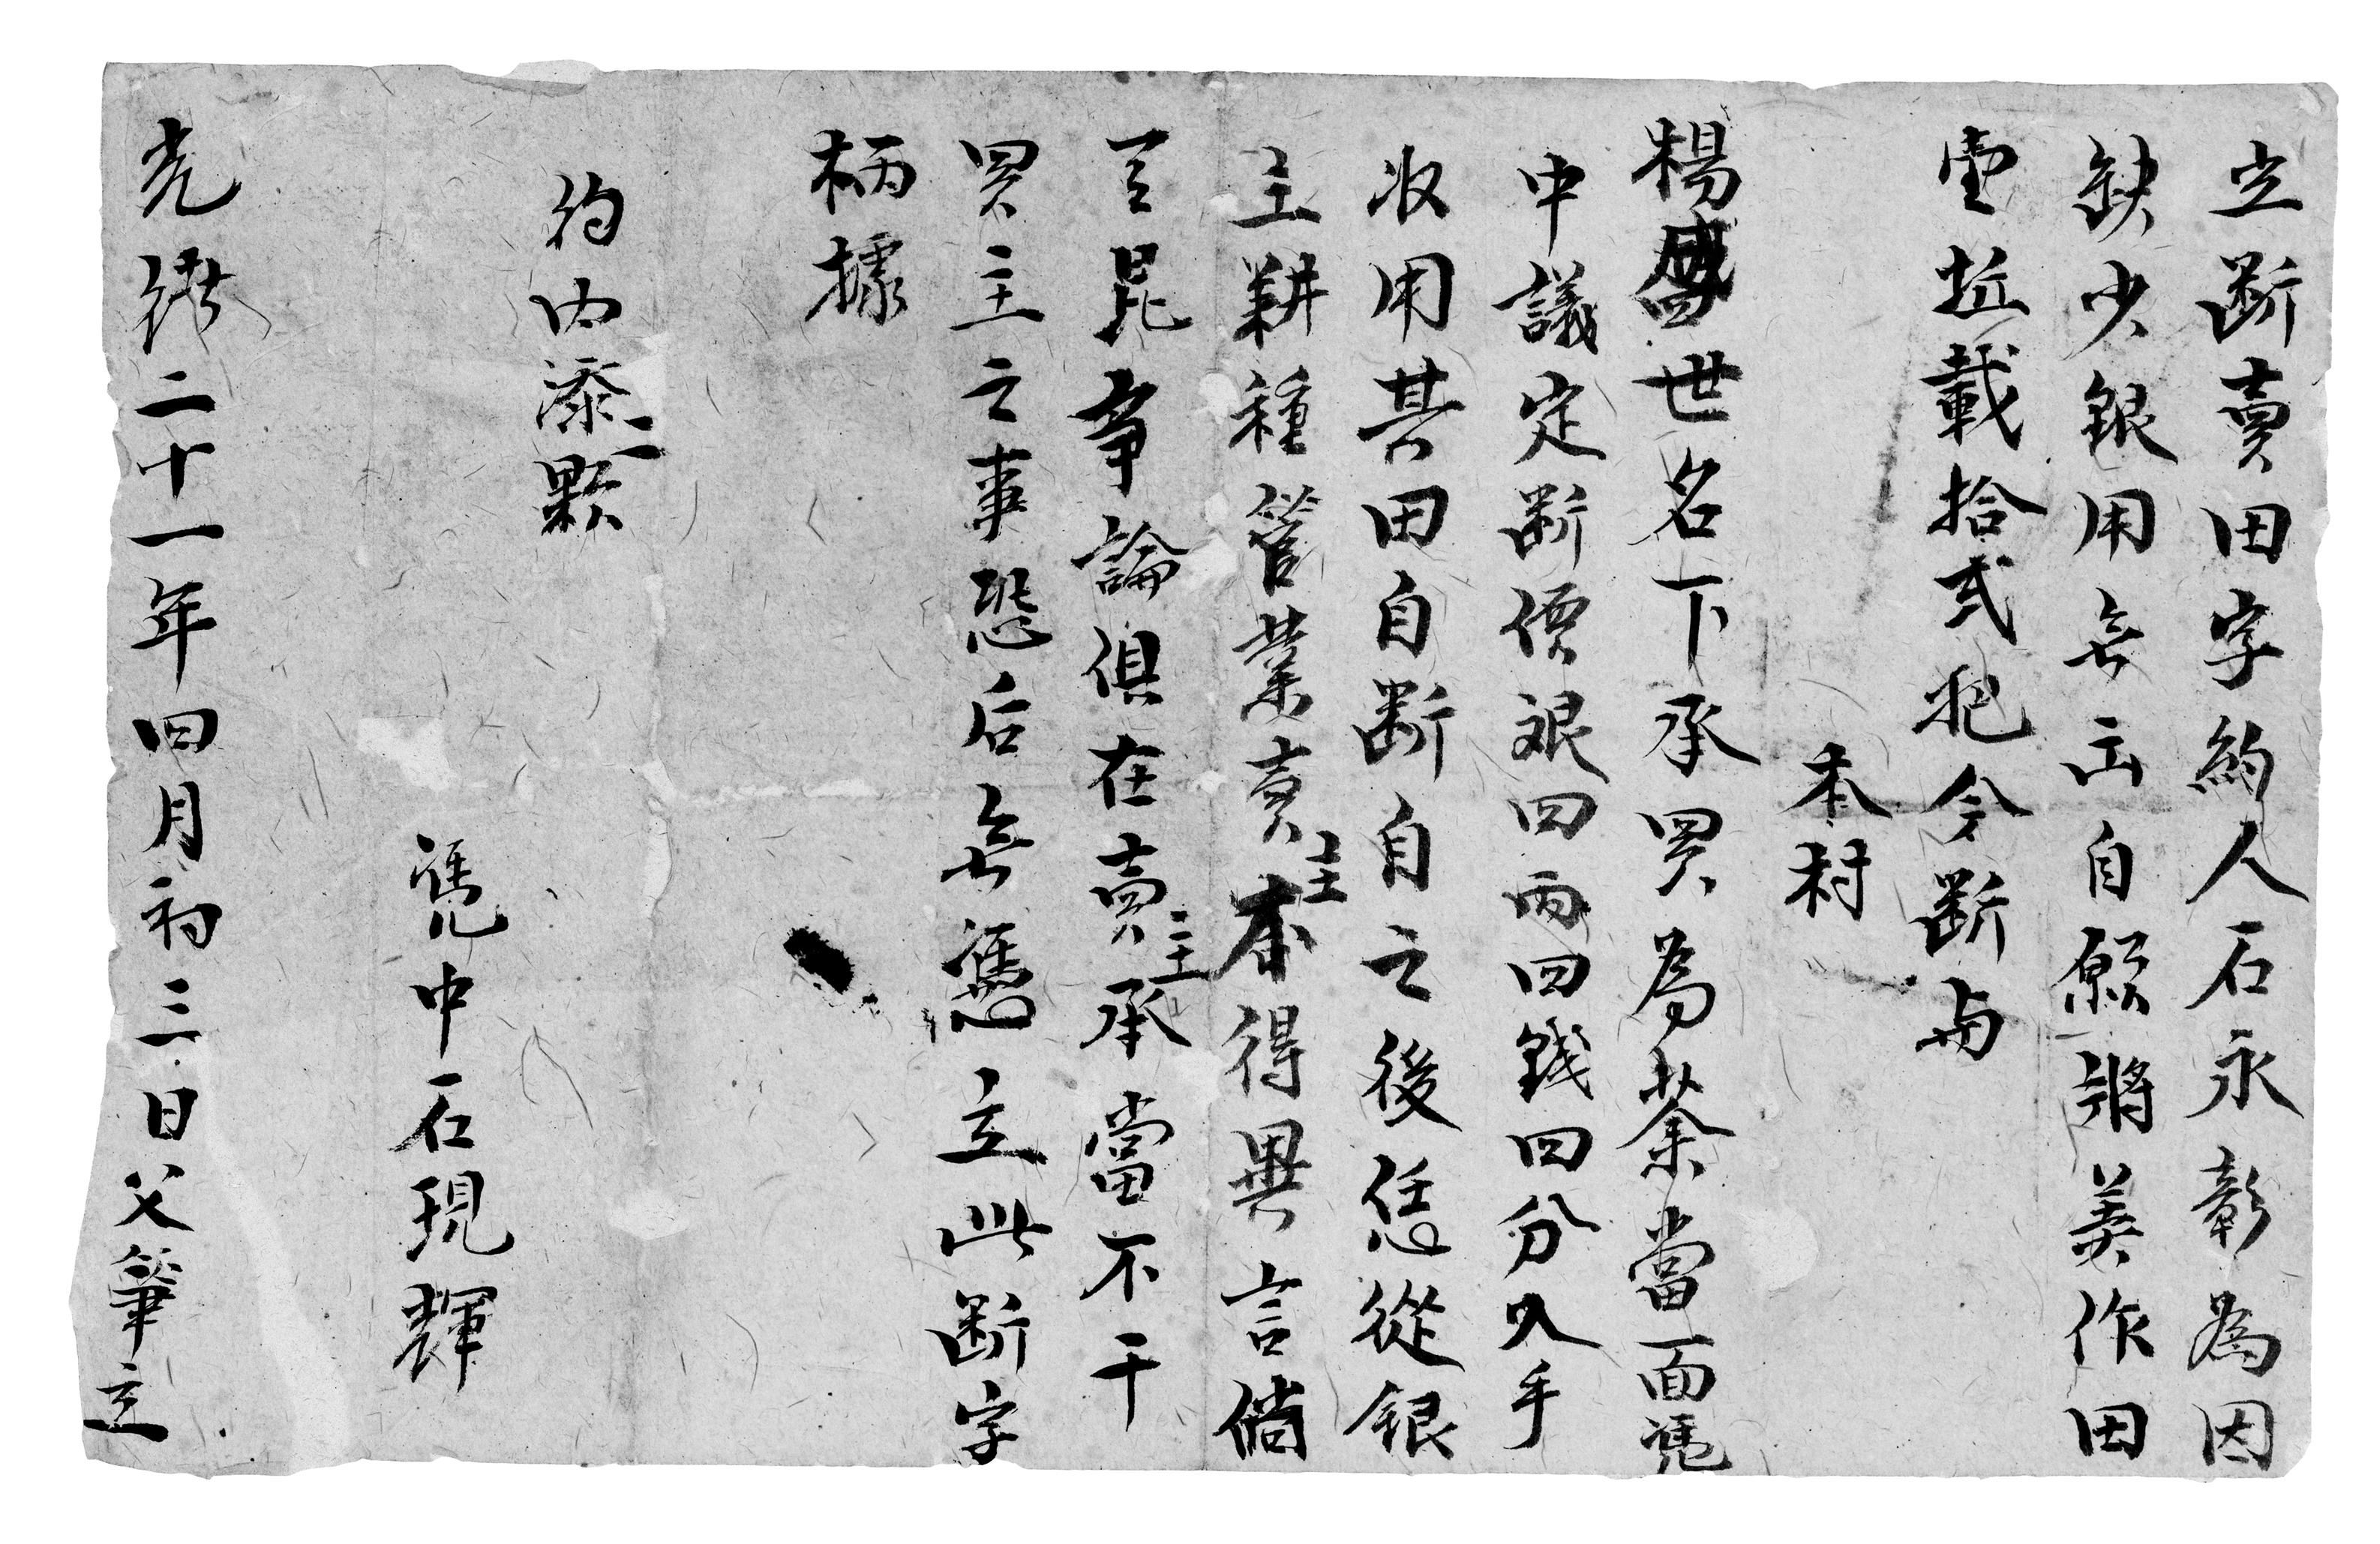 立断賣田字約人石永彰為因
缺少銀用無出自愿將美作田
壹坵載拾弍把今断与
本村
楊盛世名下承買為業當面凴
中議定断價艮四両四錢四分入手
收用其田自断自之後恁從銀
主耕種管業賣主本得異言倘
言昆爭論俱在賣主承當不干
買主之事恐后無憑立此断字
柄據
約内添二顆
凴中石現輝
光緒二十一年四月初三日父筆立